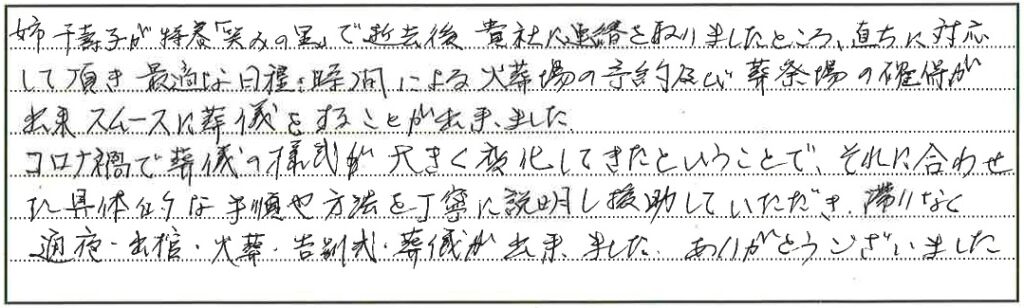 姉千壽子が特養「笑みの里」で逝去後 貴社に連絡を取りましたところ、直ちに対応
して頂き 最適な日程・時間による火葬場の予約及び葬祭場の確保が
出来 スムースに葬儀をすることが出来ました
コロナ禍で葬儀の様式が大きく変化してきたということで、それに合わせ
た具体的な手順や方法を丁寧に説明し援助していただき、滞りなく
通夜・出棺・火葬・告別式・葬儀が出来ました。ありがとうございました